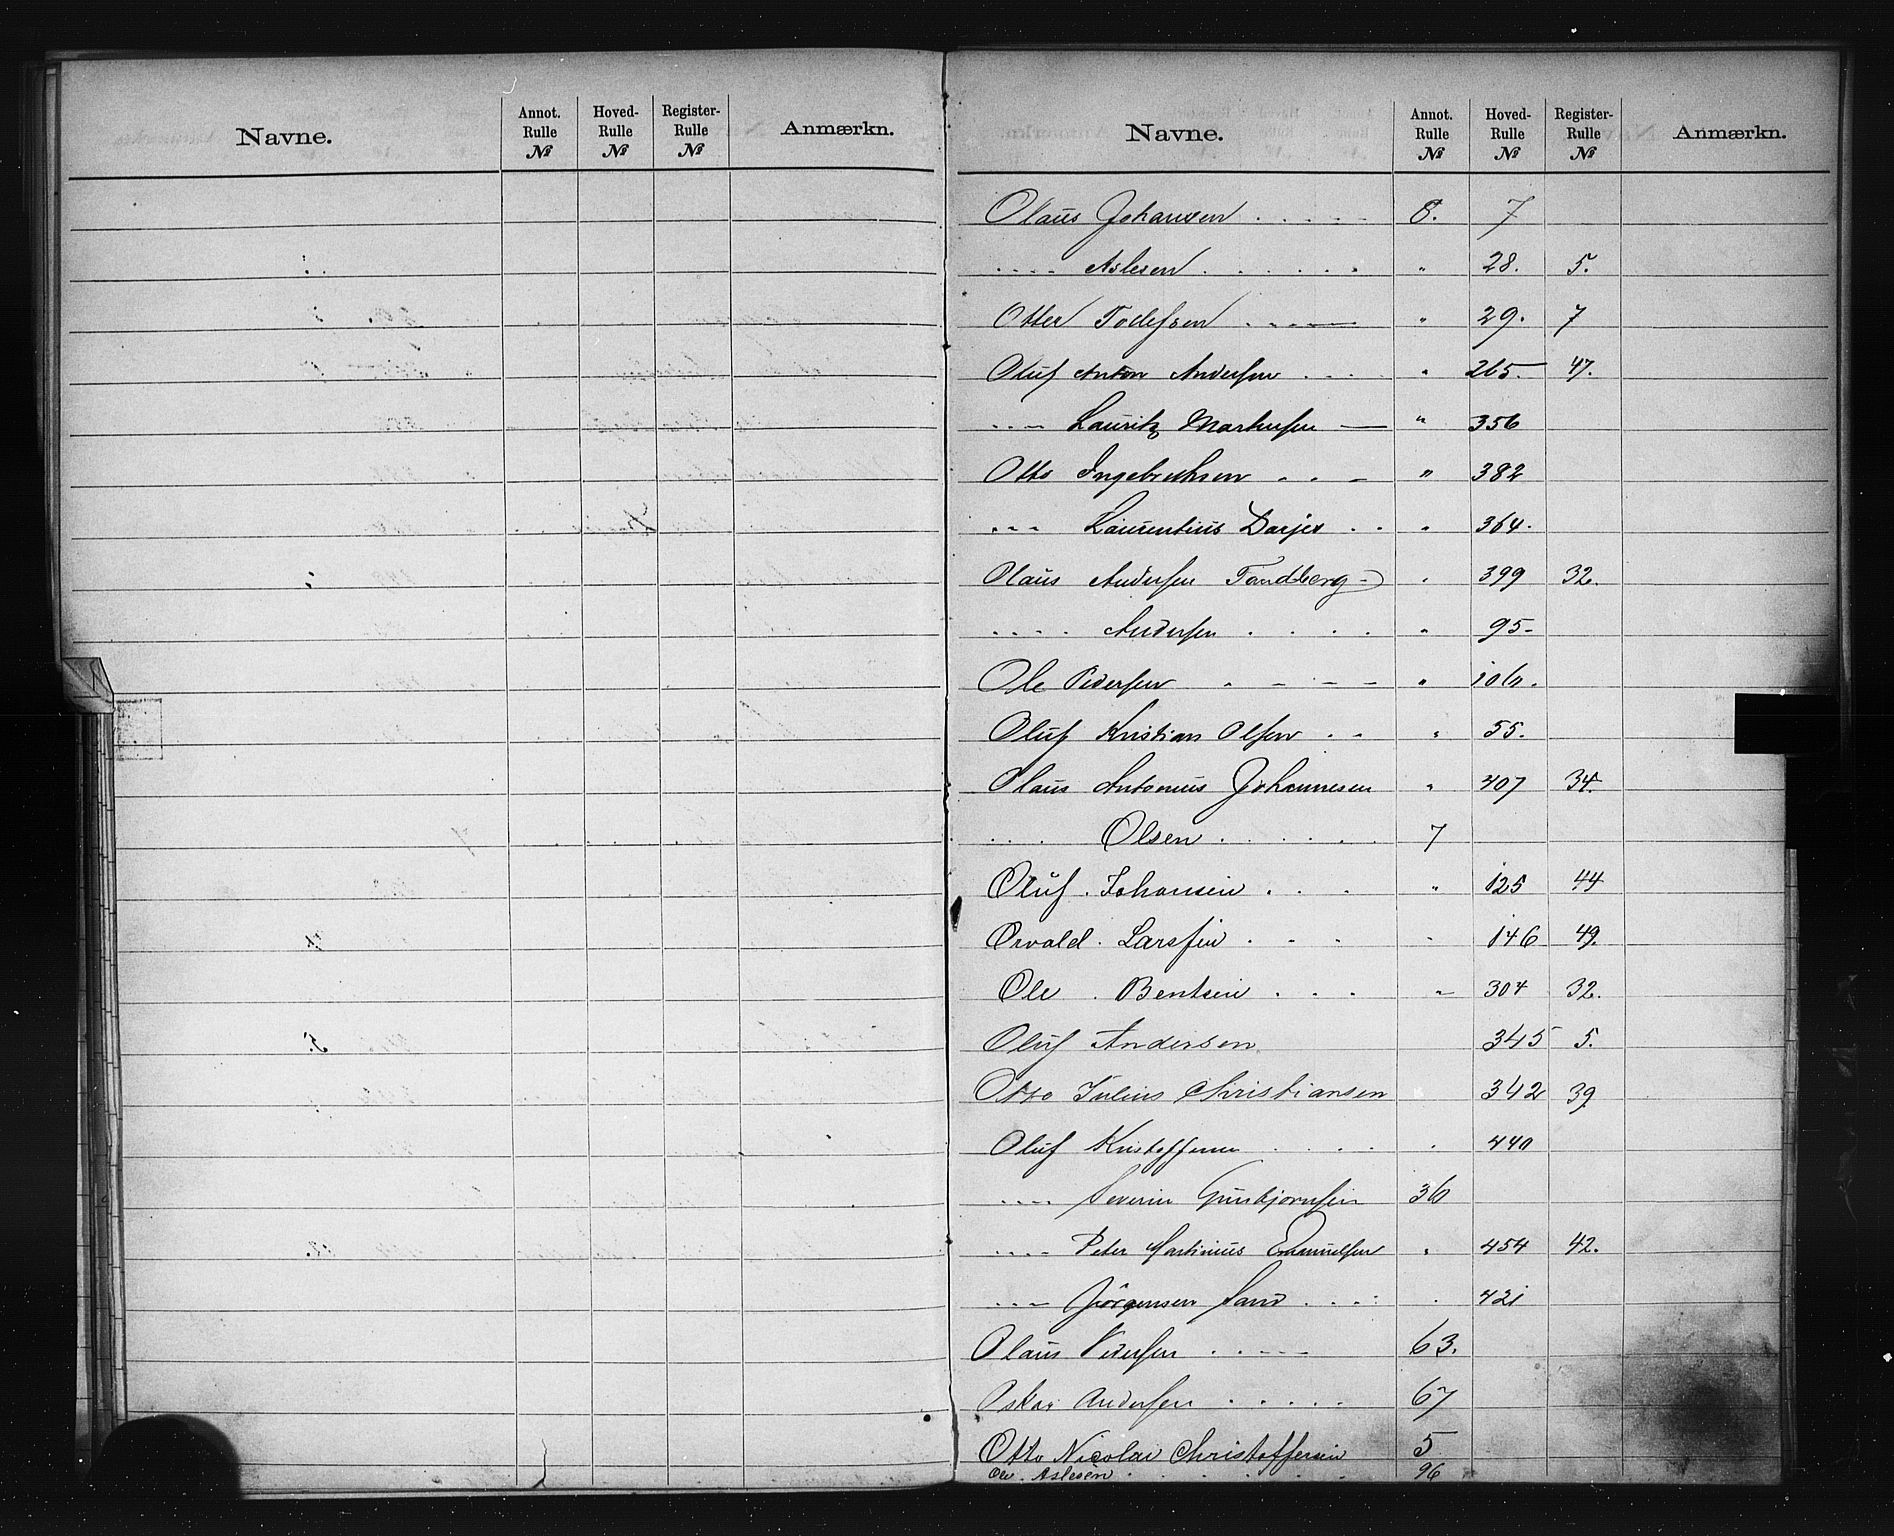 Navne. Annot. Rulle № Hoved- Rulle № Register- Rulle № Anmærkn.
Navne. Annot. Rulle № Hoved- Rulle № Register- Rulle № Anmærkn.
Olaus Johansen . . . . . 8. 7
.... Aslesen . . . . . . " 28. 5.
Otter Tollefsen . . . . " 29. 7
Oluf Anton Andersen . . . " 265. 47.
.... Lauritz Martinsen — " 356
Otto Ingebrethsen . . . " 382
... Laurentius Darjes . . " 364.
Olaus Andersen Tandberg " 399 32.
.... Andersen . . . . " 95.
Ole Pedersen . . . . " 106.
Oluf Kristian Olsen . . " 55.
Olaus Antonius Johannesen " 407 34.
.... Olsen . . . . . . 7
Oluf . Johansen . . . " 125 44
Osvald . Larsen . . . " 146 49.
Ole . Bentsen . . . " 304 32.
Oluf Andersen 345 5.
Otto Julius Christiansen 342 39
Oluf Kristoffersen . . . . " 440
.... Severin Gunbjørnsen 36
.... Peter Martinius Emanuelsen " 454 42.
.... Jørgensen Sand . . . . " 421
Olaus Pedersen . . . . . 63.
Oskar Andersen . . . . . 67
Otto Nicolai Christoffersen 5
Ole . Aslesen . . . . . . 96
N